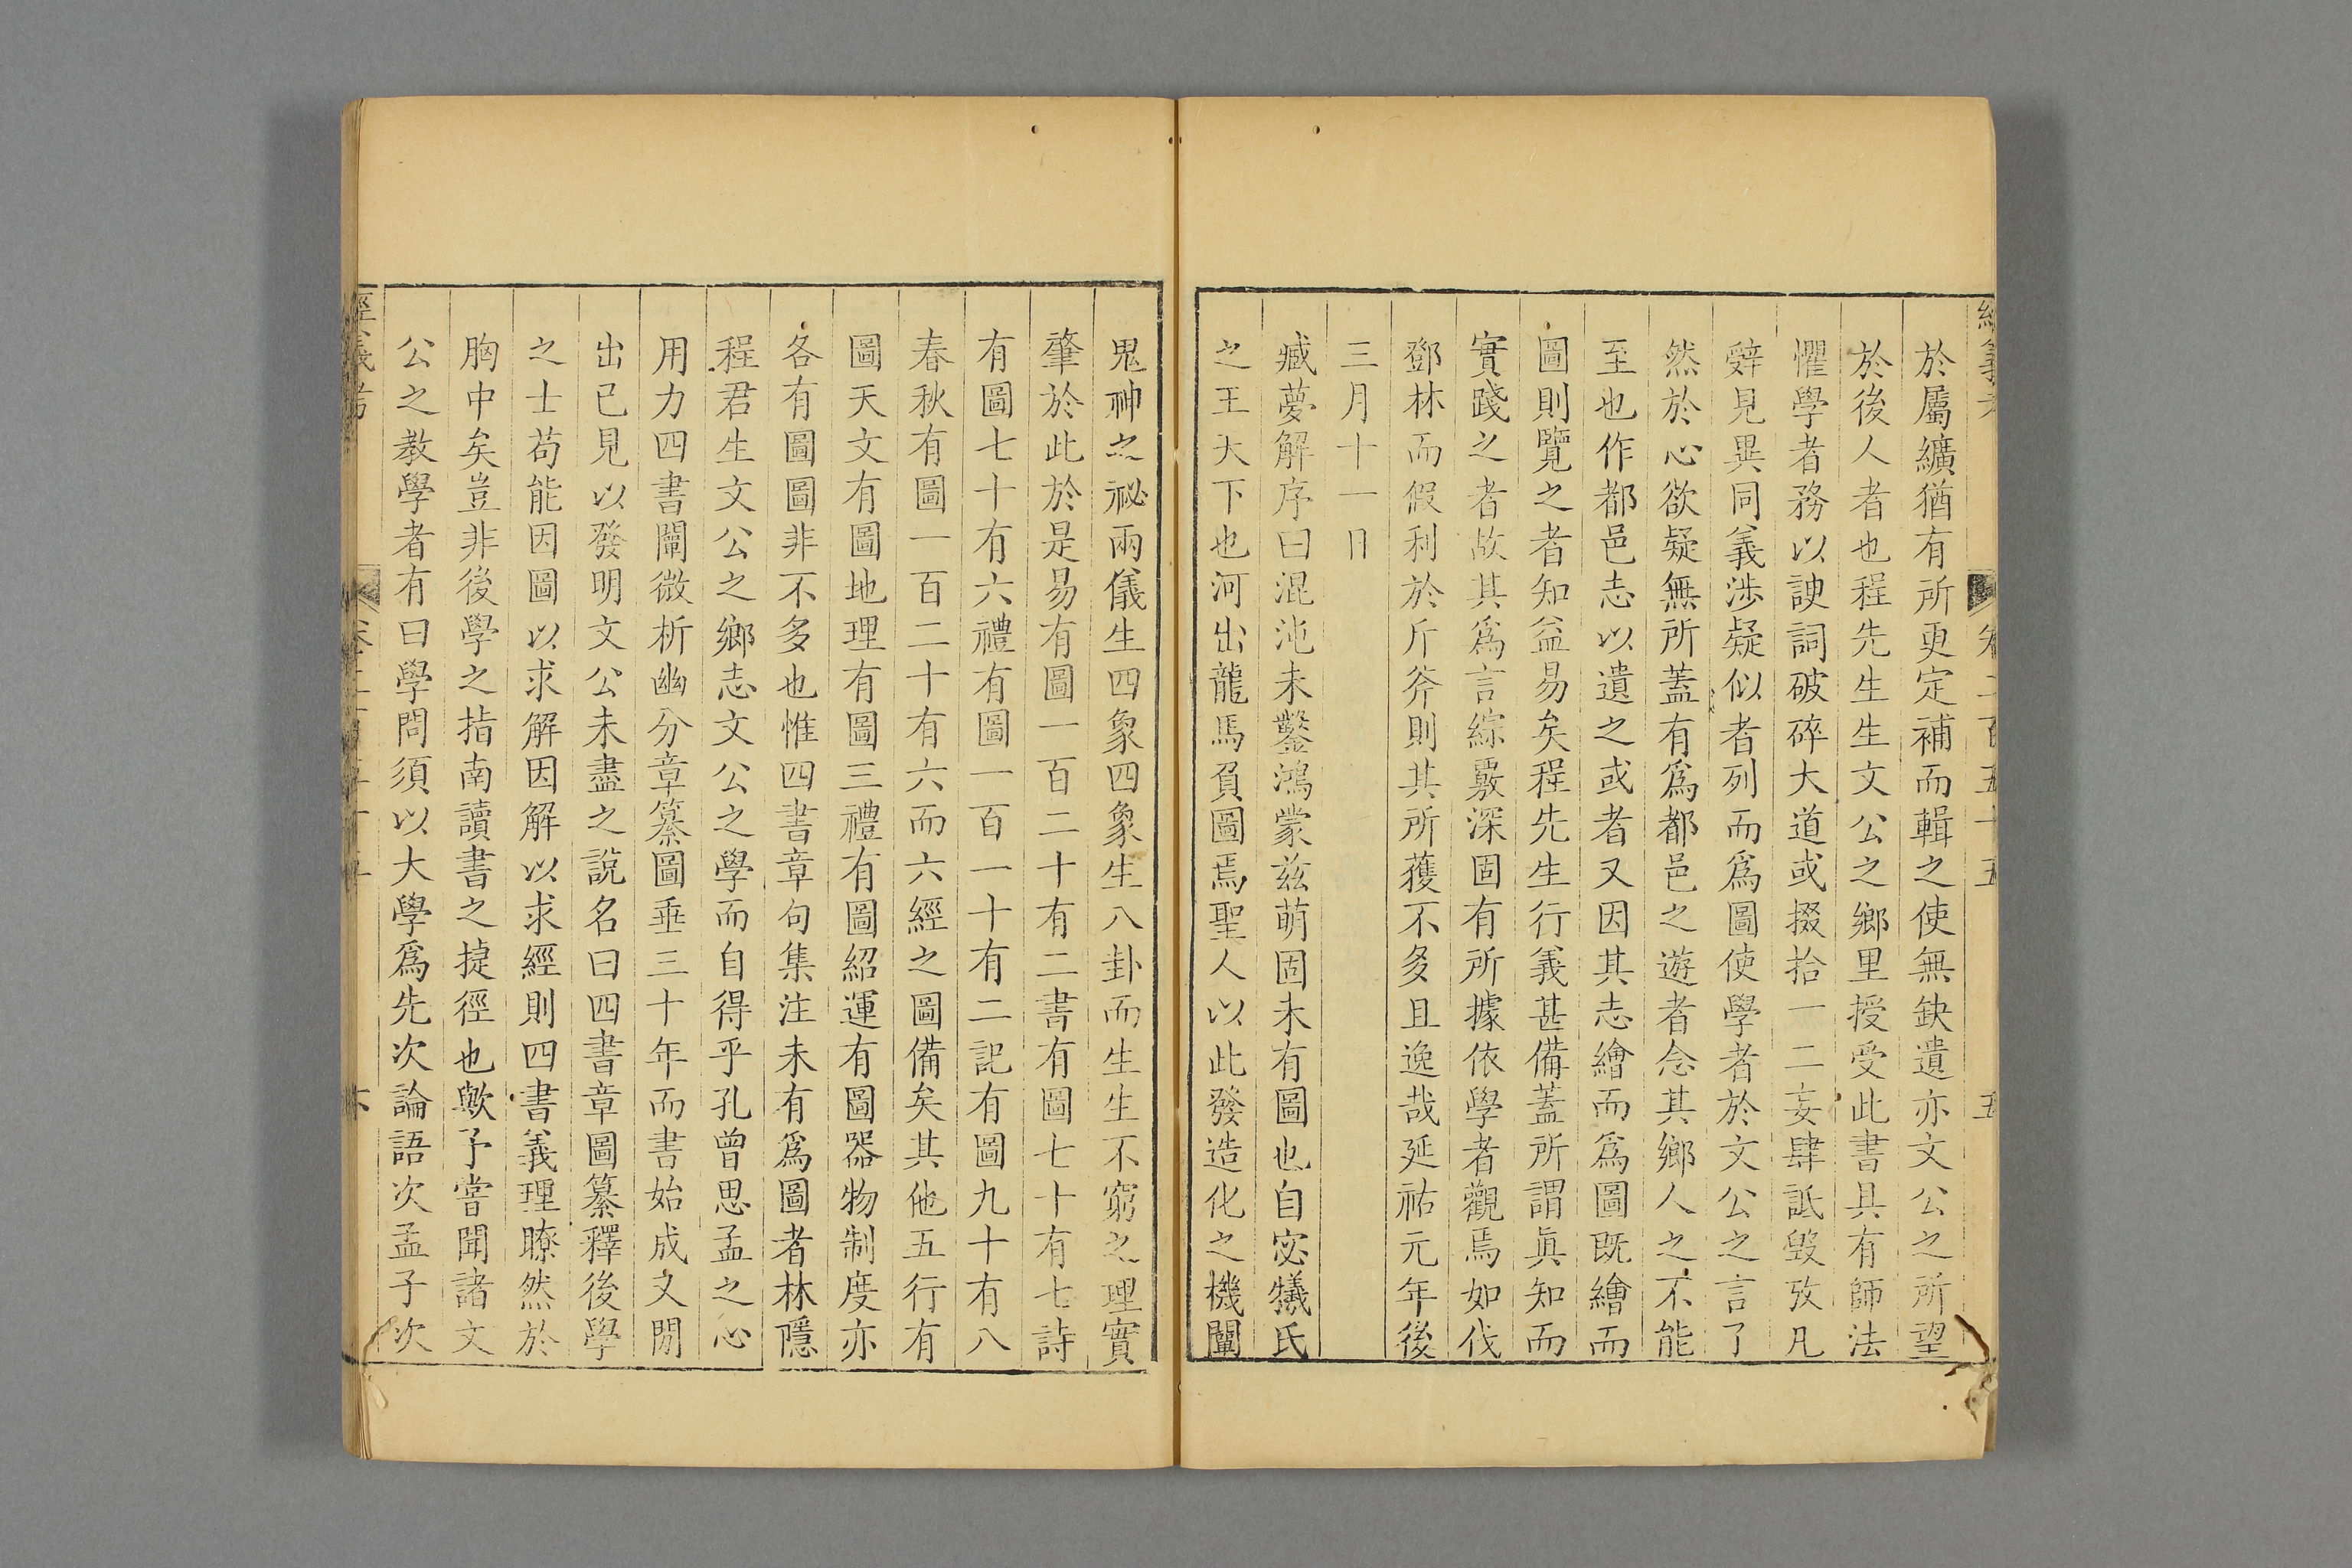 於屬纊猶有所更定補而輯之使無缺遺亦文公之所望
於後人者也程先生生文公之鄉里授受此書具有師法
懼學者務以諛詞破碎大道或掇拾一二妄肆詆毀攷凡
辤見異同義涉疑似者列而為圖使學者於文公之言了
然於心欲疑無所蓋有為都邑之遊者念其鄉人之不能
至也作都邑志以遺之或者又因其志繪而為圖既繪而
圖則覽之者知益易矣程先生行義甚備蓋所謂眞知而
實踐之者故其為言綜覈深固有所據依學者觀焉如伐
鄧林而假利於斤斧則其所獲不多且逸哉延祐元年後
三月十一日
臧夢解序曰混沌未鑿鴻蒙茲萌固未有圖也自宓犧氏
之王天下也河出龍馬負圖焉聖人以此發造化之機闡
鬼神之祕兩儀生四象四象生八卦而生生不窮之理實
肇於此於是易有圖一百二十有二書有圖七十有七詩
有圖七十有六禮有圖一百一十有二記有圖九十有八
春秋有圖一百二十有六而六經之圖備矣其他五行有
圖天文有圖地理有圖三禮有圖紹運有圖器物制度亦
各有圖圖非不多也惟四書章句集注未有為圖者林隱
程君生文公之鄉志文公之學而自得乎孔曾思孟之心
用力四書闡微析幽分章纂圖垂三十年而書始成又間
出己見以發明文公未盡之說名曰四書章圖纂釋後學
之士苟能因圖以求解因解以求經則四書義理瞭然於
胸中矣豈非後學之指南讀書之捷徑也歟予嘗聞諸文
公之教學者有曰學問須以大學為先次論語次孟子次